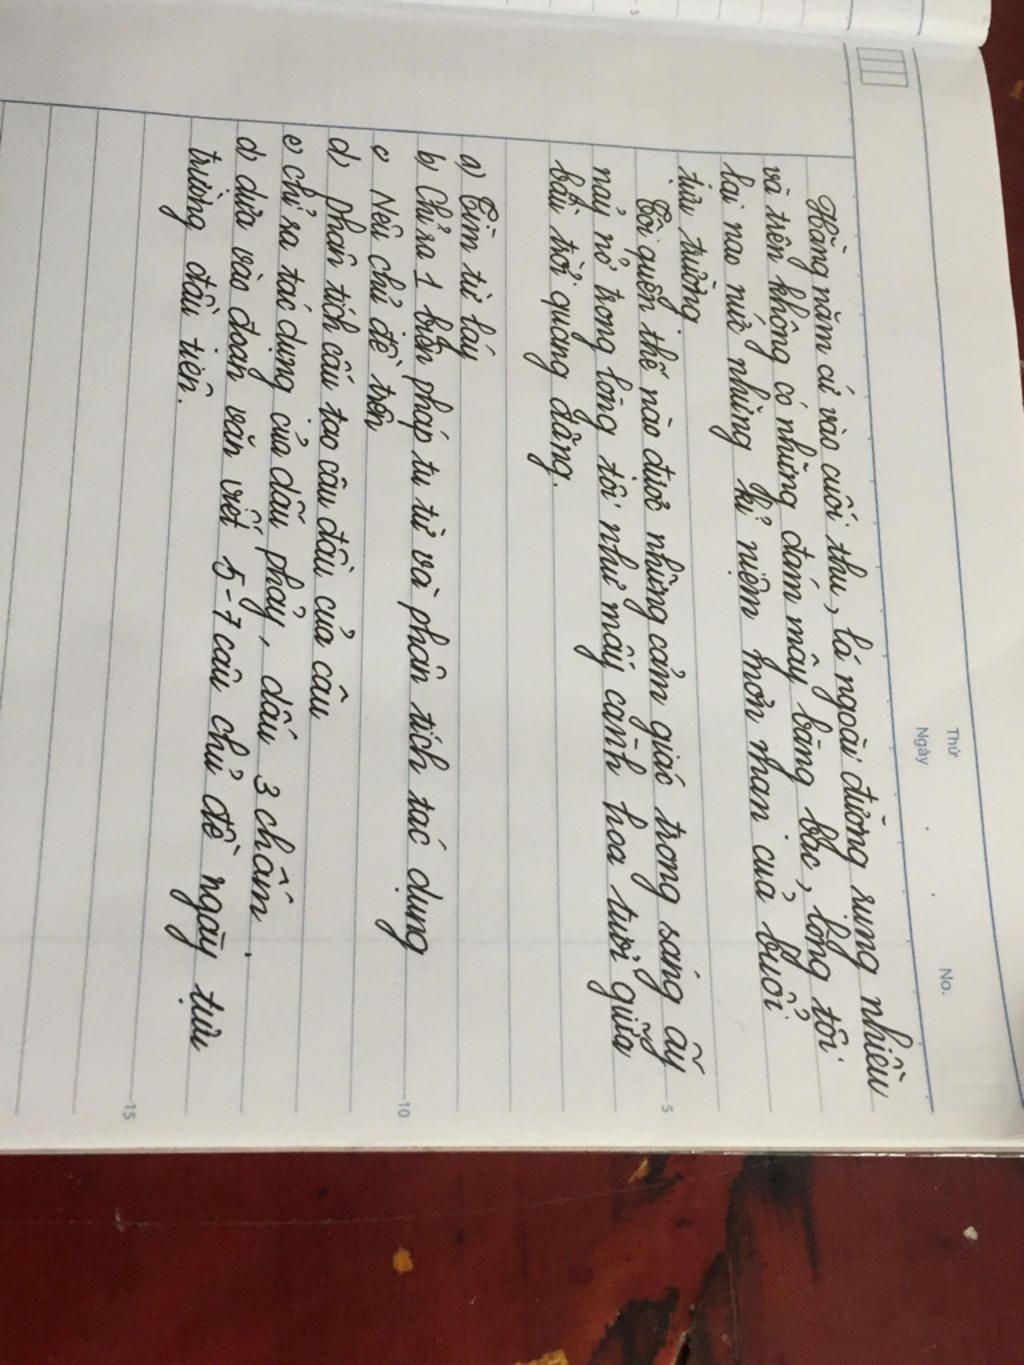 Thứ
Ngày
No.
Hằng năm cứ vào cuối thu, lá ngoài đường rụng nhiều
và trên không có những đám mây bàng bạc, lòng tôi
lại nao nức những kỉ niệm mơn man của buổi
tựu trường
Tôi quên thế nào được những cảm giác trong sáng ấy
nảy nở trong lòng tôi như mấy cành hoa tươi giữa
bầu trời quang đãng.
5
a) Tìm từ láy
b) Chỉ ra 1 biện pháp tu từ và phân tích tác dụng
c Nêu chủ đề trên
10
d) phân tích cấu tạo câu đầu của câu
e) chỉ ra tác dụng của dấu phẩy, dấu 3 chấm.
d) dựa vào đoạn văn viết 5-7 câu chủ đề ngày tựu
trường đầu tiên.
15